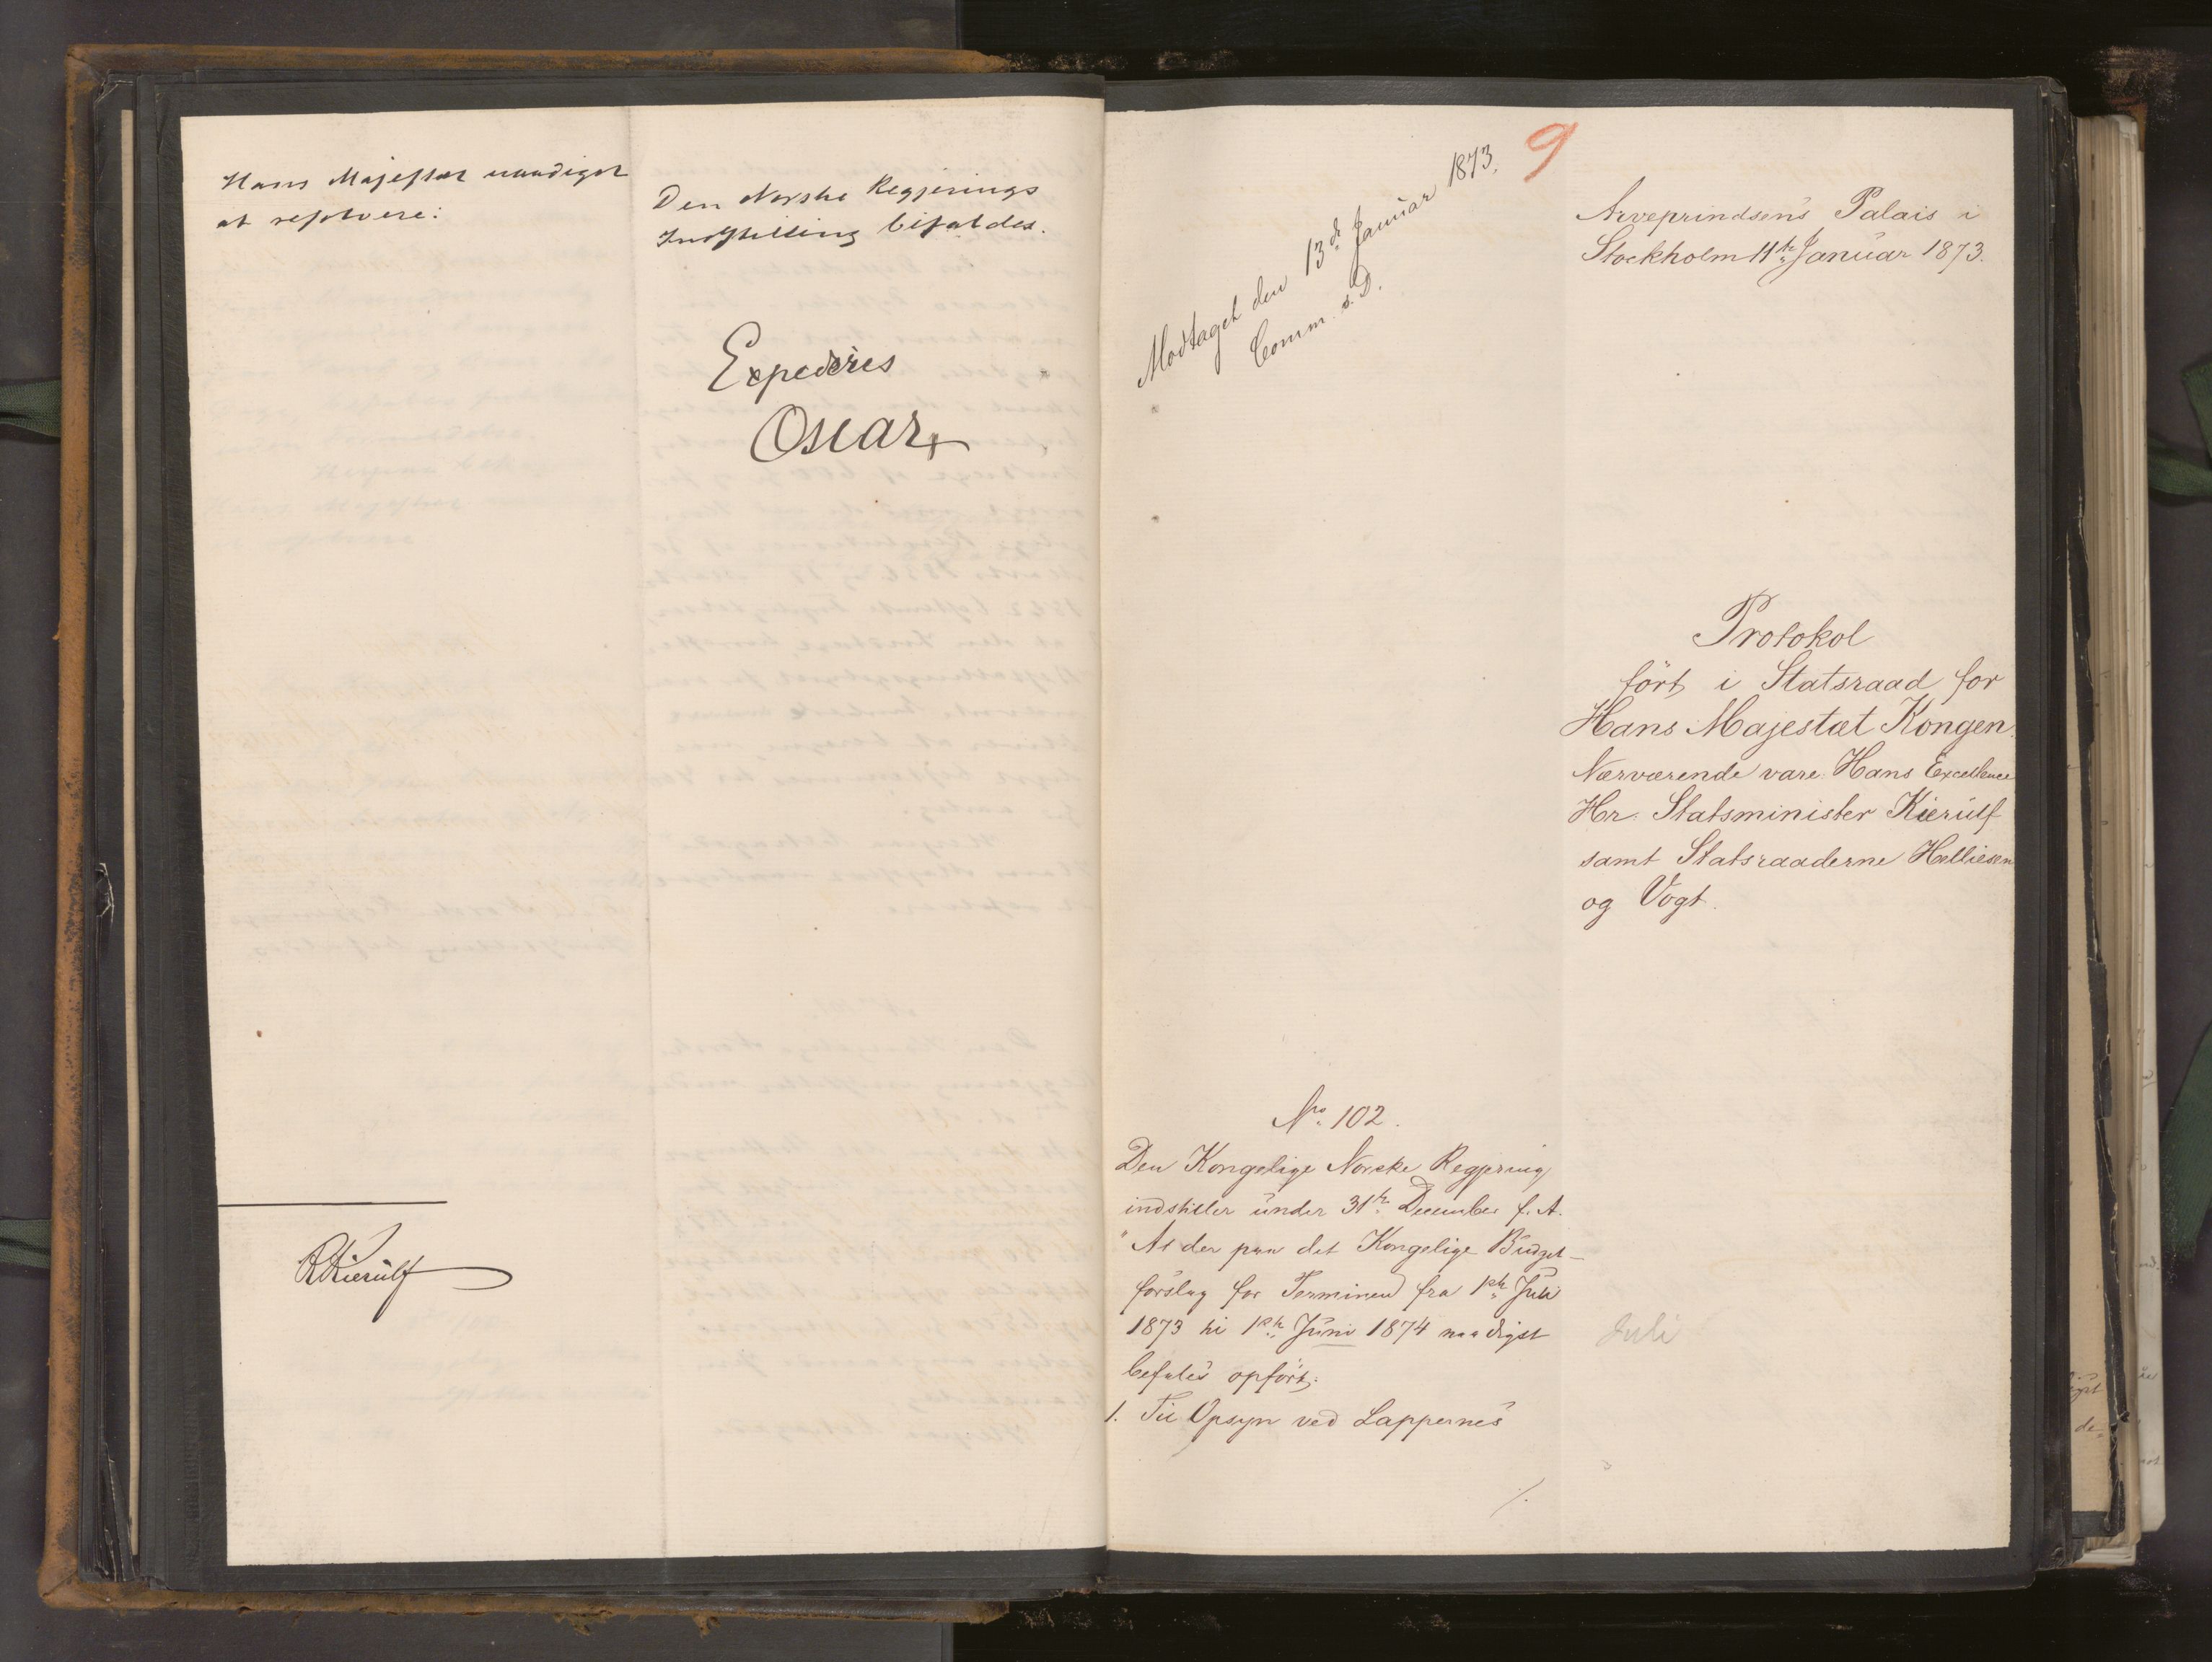 Hans Majestæt naadigst
at resolvere:
Den Norske Regjerings
Indstilling bifaldes.
Expederes
Oscar
RKierulf
9
Modtaget den 13de Januar 1873.
Comm. s. D.
Arveprindsens Palais i
Stockholm 11te Januar 1873.
Protokol
ført i Statsraad for
Hans Majestæt Kongen.
Nærværende vare: Hans Excellence
Hr. Statsminister Kierulf
samt Statsraaderne Helliesen
og Vogt.
No. 102.
Den Kongelige Norske Regjering
indstiller under 31te December f. A.
"At der paa det Kongelige Budget-
forslag for Terminen fra 1ste Juli
1873 til 1ste Juni 1874 naadigst
befales opført:
Juli
1. Til Opsyn ved Lappernes
/.